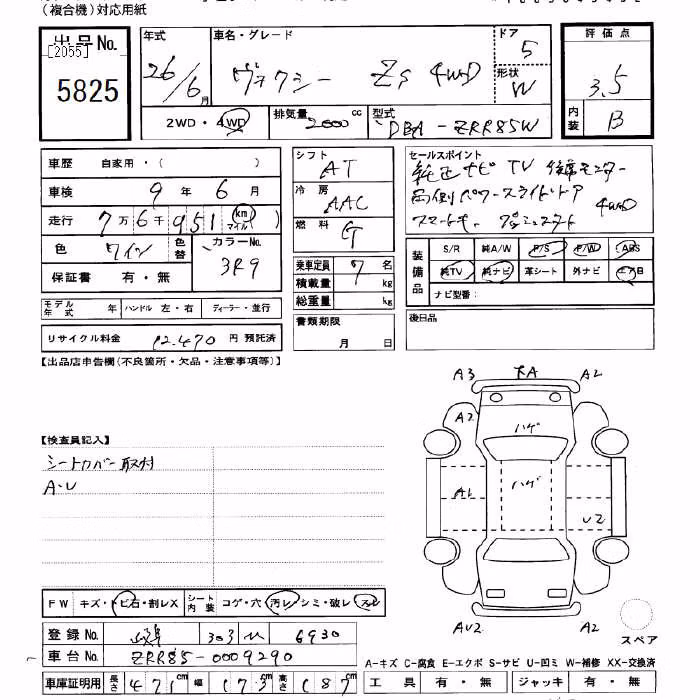 (複合機)対応用紙
出品No.
[2055]
5825
年式
26/6月
車名・グレード
ヴォクシー Zs 4WD
ドア
5
形状
W
評価点
3.5
内装
B
2WD・4WD
排気量
2000 cc
型式
DBA-ZRR85W
車歴 自家用・( )
車検 9年 6月
走行 7万6千951 (km マイル)
色 ワイン
色替
カラーNo.
3R9
保証書 有・無
シフト
AT
冷房
AAC
燃料
G
乗車定員 7名
積載量 kg
総重量 kg
セールスポイント
純正ナビ TV 後席モニター
両側パワースライドドア
スマートキー プッシュスタート 4WD
装備品
S/R 純A/W P/S P/W ABS
純TV 純ナビ 革シート 外ナビ
ナビ型番:
モデル年式 年 ハンドル 左・右 ディーラー・並行
リサイクル料金 12.470 円 預託済
書類期限
月 日
後日品
【出品店申告欄(不良箇所・欠品・注意事項等)】
A3 A2
A2
ハゲ
【検査員記入】
シートカバー取付
A・U
A1
ハゲ
U2
AU2 A2
スペア
FW キズ・トビ石・割レX
シート内装 コゲ・穴 汚レ シミ・破レ スレ
登録No. 303 6930
車台No. ZRR85-0009290
車庫証明用 長さ 471cm 幅 173cm 高さ 187
A-キズ C-腐食 E-エクボ S-サビ U-凹ミ W-補修 XX-交換済
工具 有・無 ジャッキ 有・無